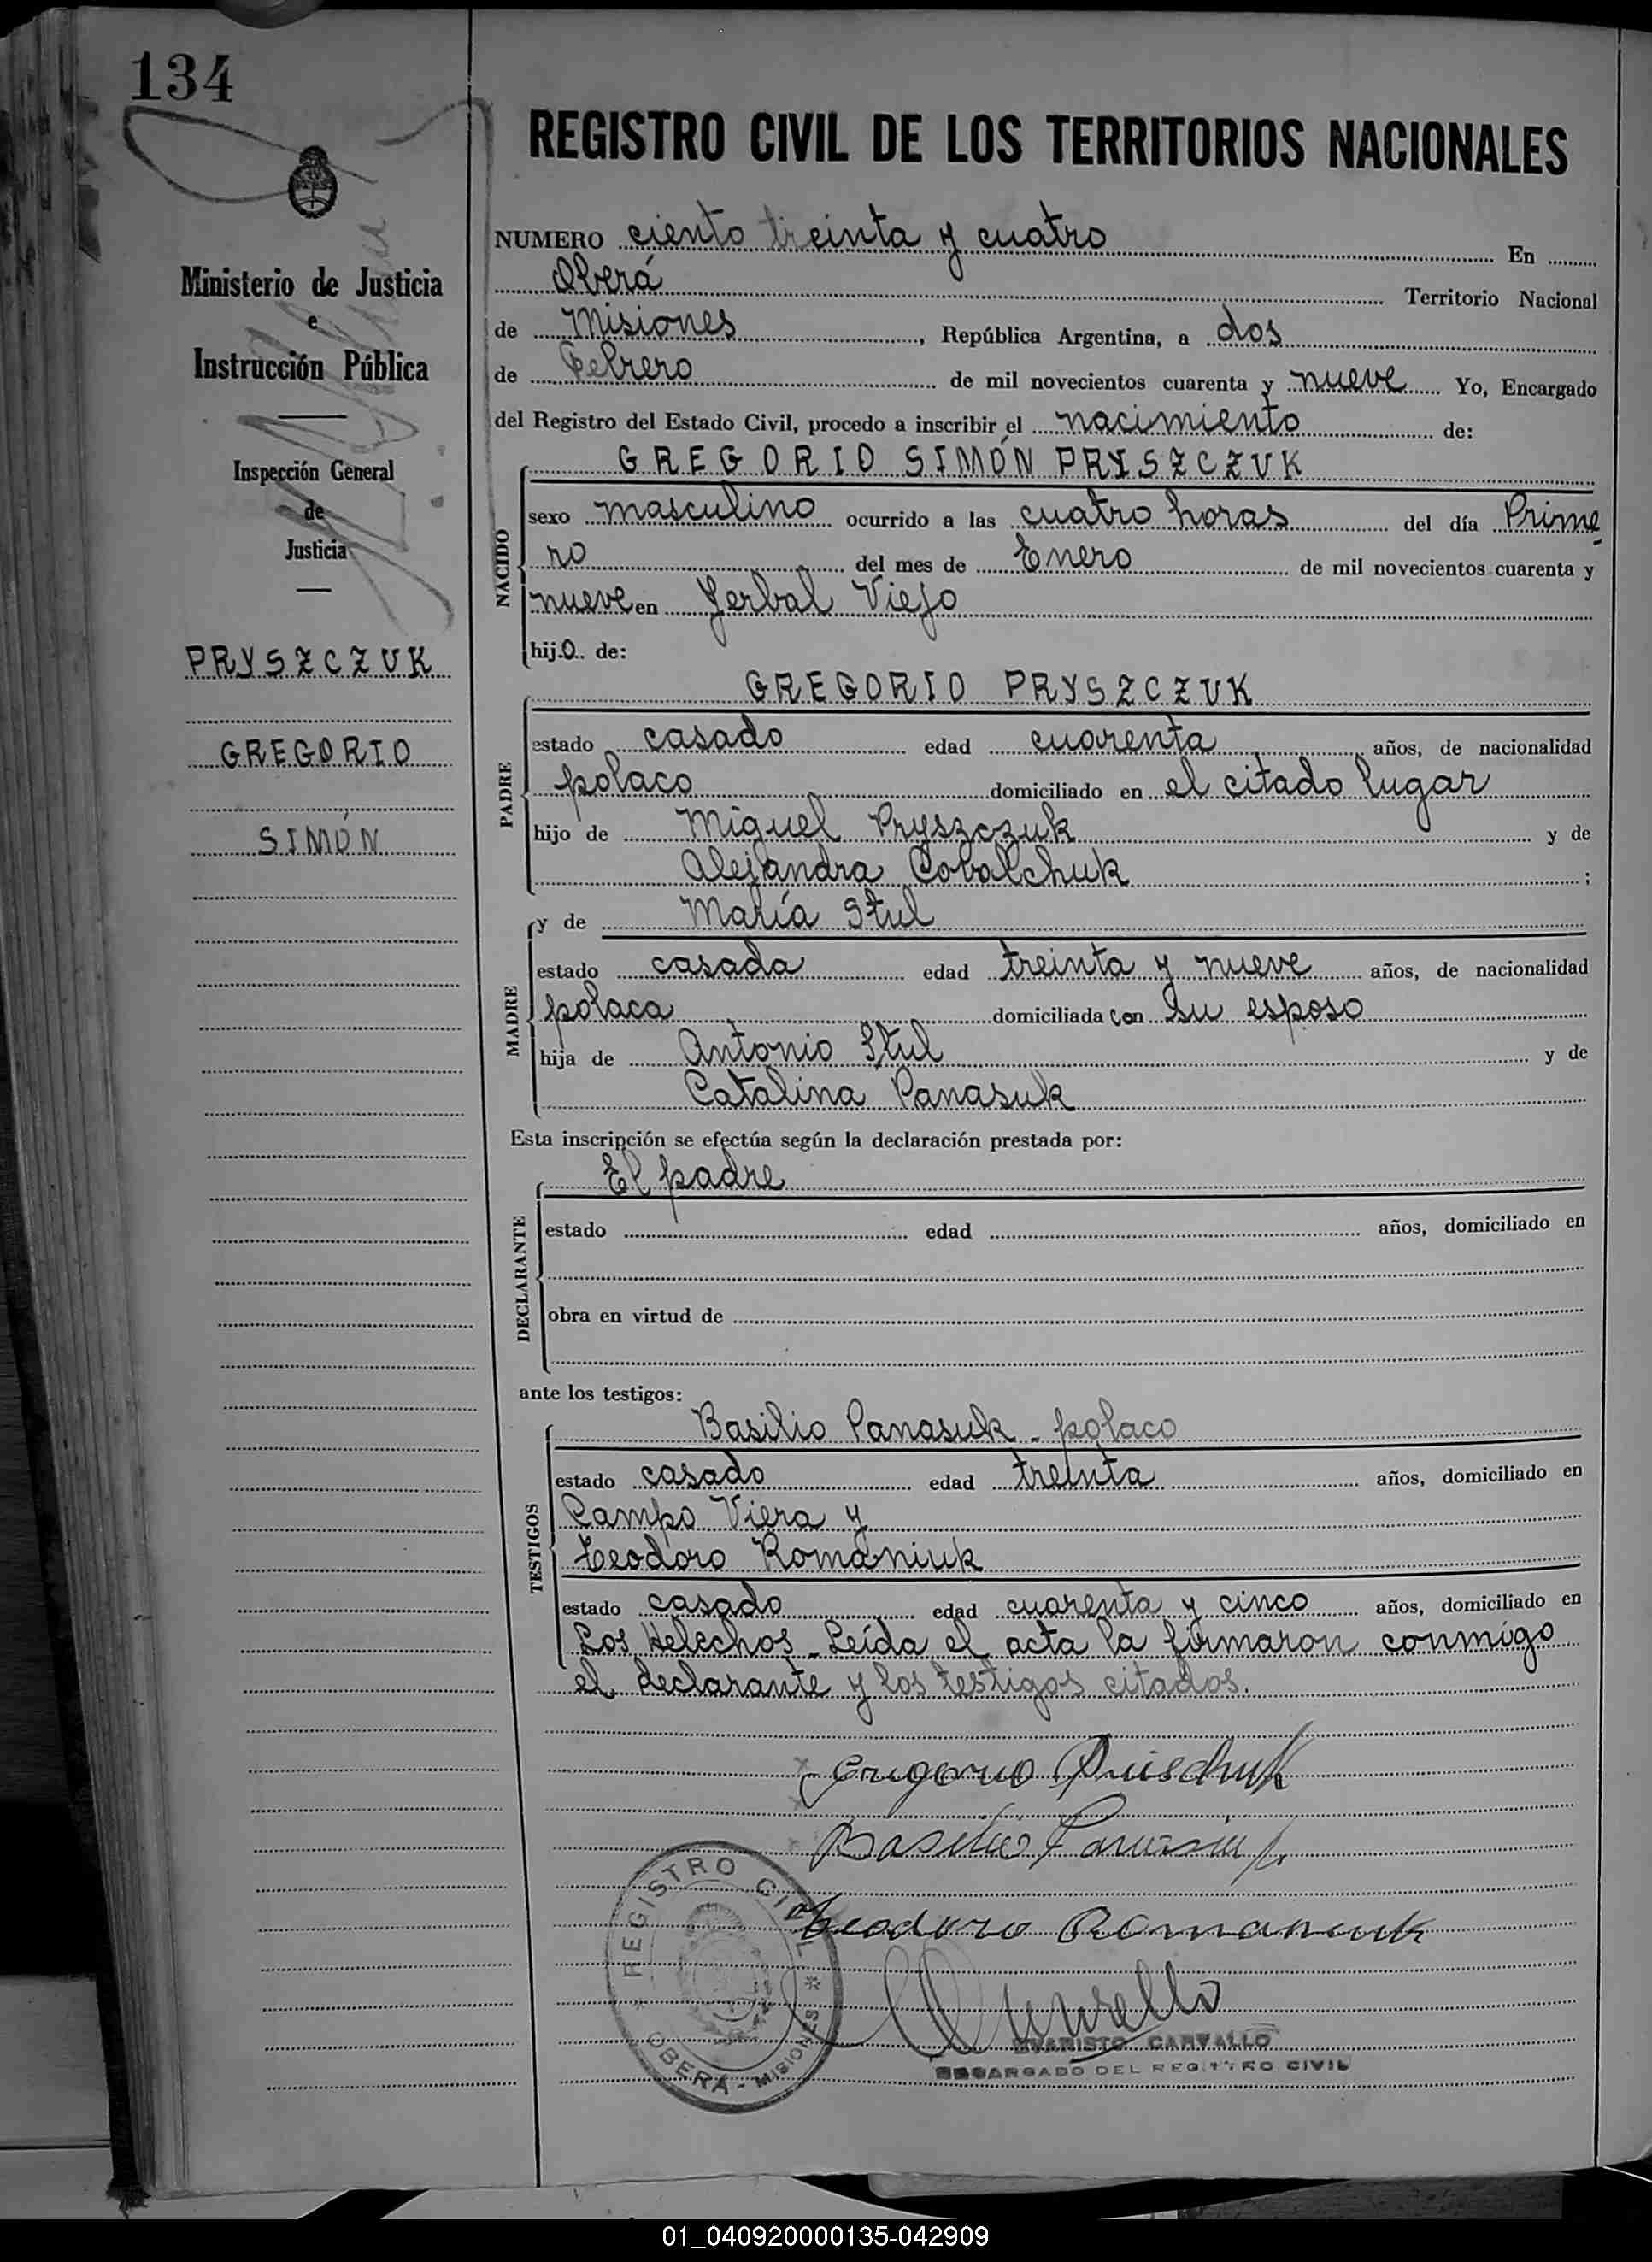 134
Ministerio de Justicia
e
Instrucción Pública
Inspección General
de
Justicia
PRYSZCZUK
GREGORIO
SIMÓN
REGISTRO CIVIL DE LOS TERRITORIOS NACIONALES
NUMERO ciento treinta y cuatro En
Oberá Territorio Nacional
de Misiones, República Argentina, a dos
de Febrero de mil novecientos cuarenta y nueve Yo, Encargado
del Registro del Estado Civil, procedo a inscribir el nacimiento de:
NACIDO
GREGORIO SIMÓN PRYSZCZUK
sexo masculino ocurrido a las cuatro horas del día Prime
ro del mes de Enero de mil novecientos cuarenta y
nueve en Yerbal Viejo
hijo de:
PADRE
GREGORIO PRYSZCZUK
estado casado edad cuarenta años, de nacionalidad
polaco domiciliado en el citado lugar
hijo de Miguel Pryszczuk y de
Alejandra Cobalchuk;
MADRE
y de María Stul
estado casada edad treinta y nueve años, de nacionalidad
polaca domiciliada con su esposo
hija de Antonio Stul y de
Catalina Panasuk
Esta inscripción se efectúa según la declaración prestada por:
DECLARANTE
El padre
estado edad años, domiciliado en
obra en virtud de
ante los testigos:
TESTIGOS
Basilio Panasuk - polaco
estado casado edad treinta años, domiciliado en
Campo Viera y
Teodoro Romaniuk
estado casado edad cuarenta y cinco años, domiciliado en
Los Helechos - Leída el acta la firmaron conmigo
el declarante y los testigos citados.
Basilio
Teodoro Romaniuk
REGISTRO CIVIL
OBERÁ - MISIONES
EVARISTO CARVALLO
ENCARGADO DEL REGISTRO CIVIL
01_040920000135-042909